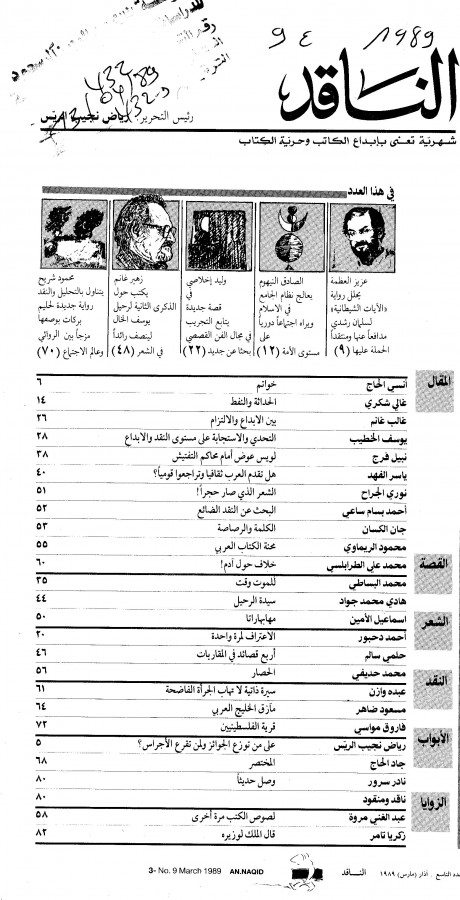 1989 ٩٤
الناقد
رئيس التحرير: رياض نجيب الريّس
شهرية تعنى بإبداع الكاتب وحرية الكتاب
في هذا العدد
عزيز العظمة
يحلّل رواية
«الآيات الشيطانية»
لسلمان رشدي
مدافعاً عنها ومنتقداً
الحملة عليها (٩)
الصادق النيهوم
يعالج نظام الجامع
في الاسلام
ويراه اجتماعاً دورياً
على
مستوى الأمة (١٢)
وليد إخلاصي
في
قصة جديدة
يتابع التجريب
في مجال الفن القصصي
بحثا عن جديد (٢٢)
زهير غانم
يكتب حول
الذكرى الثانية لرحيل
يوسف الخال
لينصف رائداً
في الشعر (٤٨)
محمود شريح
يتناول بالتحليل والنقد
رواية جديدة لحليم
بركات بوصفها
مزجاً بين الروائي
وعالم الاجتماع (٧٠)
المقال
أنسي الحاج خواتم ٦
غالي شكري الحداثة والنفط ١٤
غالب غانم بين الابداع والالتزام ٢٦
يوسف الخطيب التحدي والاستجابة على مستوى النقد والابداع ٢٨
نبيل فرج لويس عوض أمام محاكم التفتيش ٣٨
ياسر الفهد هل تقدم العرب ثقافيا وتراجعوا قومياً؟ ٤٠
نوري الجراح الشعر الذي صار حجراً! ٥١
أحمد بسام ساعي البحث عن النقد الضائع ٥٢
جان الكسان الكلمة والرصاصة ٥٣
محمود الريماوي محنة الكتاب العربي ٥٥
القصة
محمد علي الطرابلسي خلاف حول آدم! ٦٠
محمد البساطي للموت وقت ٣٥
هادي محمد جواد سيدة الرحيل ٤٤
الشعر
اسماعيل الأمين مهابهاراتا ٥٠
أحمد دحبور الاعتراف لمرة واحدة ٢٠
حلمي سالم أربع قصائد في المقاربات ٤٦
محمد حديفي الحصار ٥٦
النقد
عبده وازن سيرة ذاتية لا تهاب الجرأة الفاضحة ٦١
مسعود ضاهر مأزق الخليج العربي ٦٤
فاروق مواسي قرية الفلسطينيين ٧٢
الأبواب
رياض نجيب الريّس على من توزع الجوائز ولمن تقرع الأجراس؟ ٥
جاد الحاج المختصر ٦٨
نادر سرور وصل حديثاً ٨٠
ناقد ومنقود ٨٠
الزوايا
عبد الغني مروة لصوص الكتب مرة أخرى ٥٨
زكريا تامر قال الملك لوزيره ٨٢
3- No. 9 March 1989 AN.NAQID الناقد التاسع . آذار (مارس) ١٩٨٩